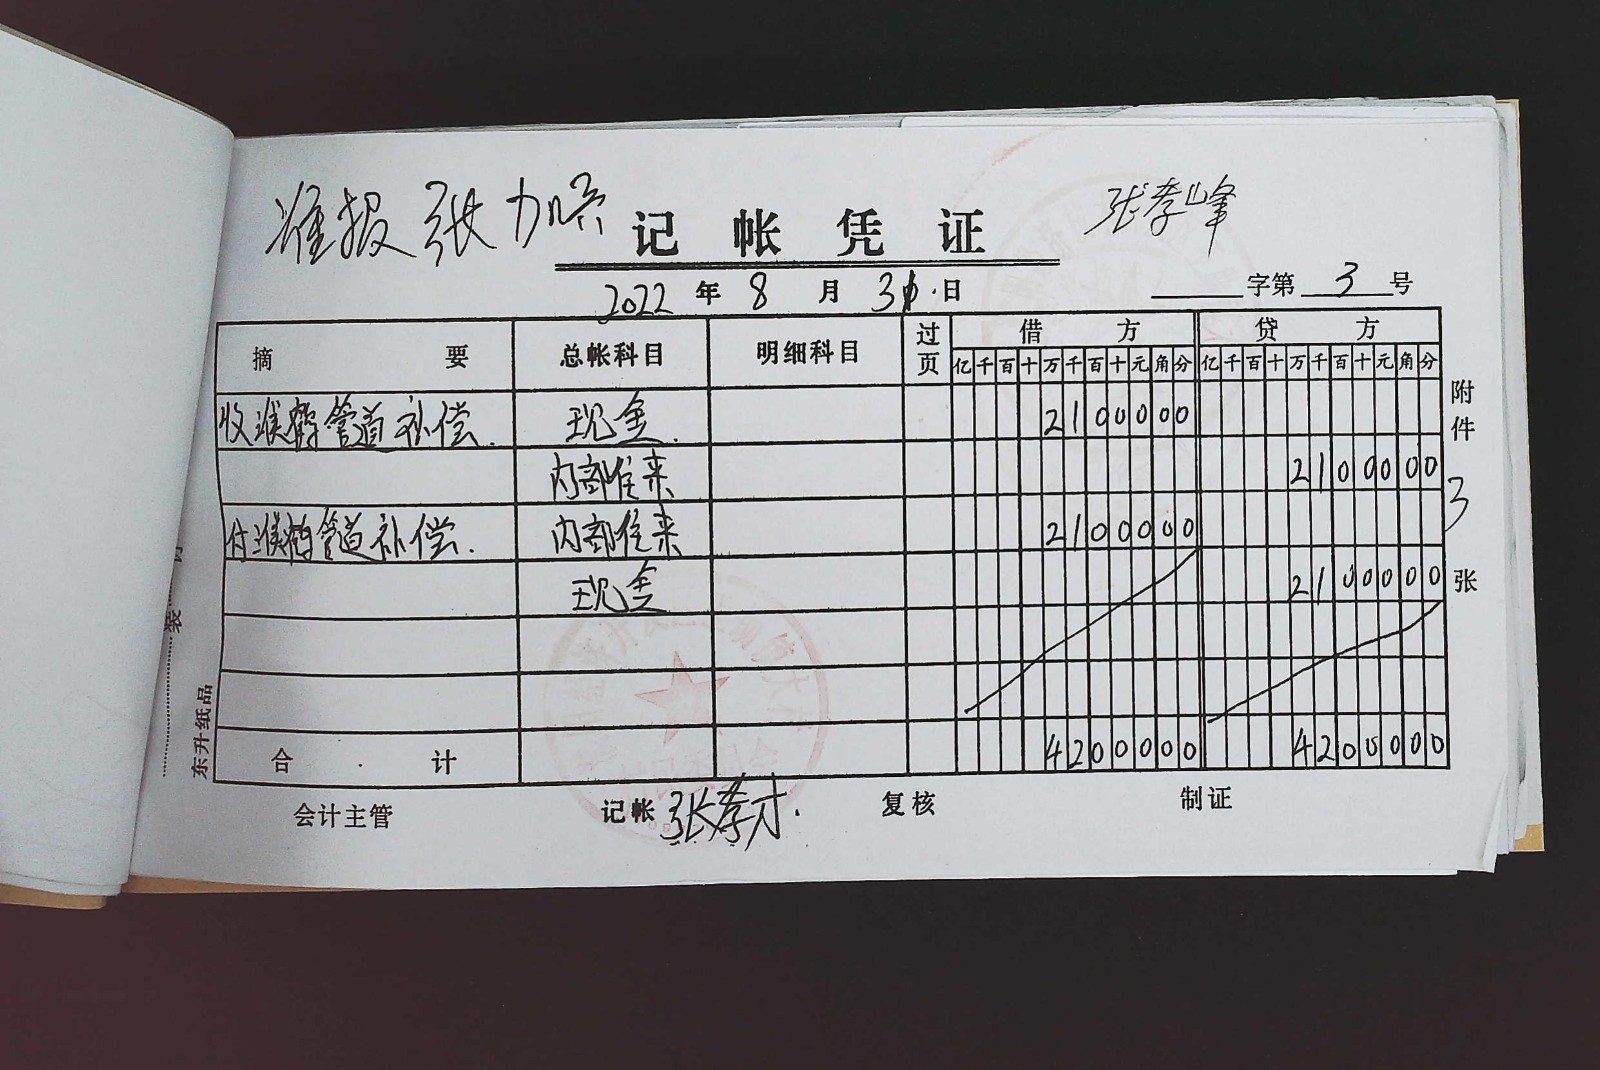 准报 张加喜 张孝峰
记帐凭证
2022 年 8 月 31 日 字第 3 号
摘要 总帐科目 明细科目 过页 借方 贷方
亿千百十万千百十元角分 亿千百十万千百十元角分
收濮鹤管道补偿. 现金. 2100000
内部往来 2100000
付濮鹤管道补偿. 内部往来 2100000
现金 2100000
合计 4200000 4200000
附件 3 张
会计主管 记帐 张孝才. 复核 制证
装订
东升纸品